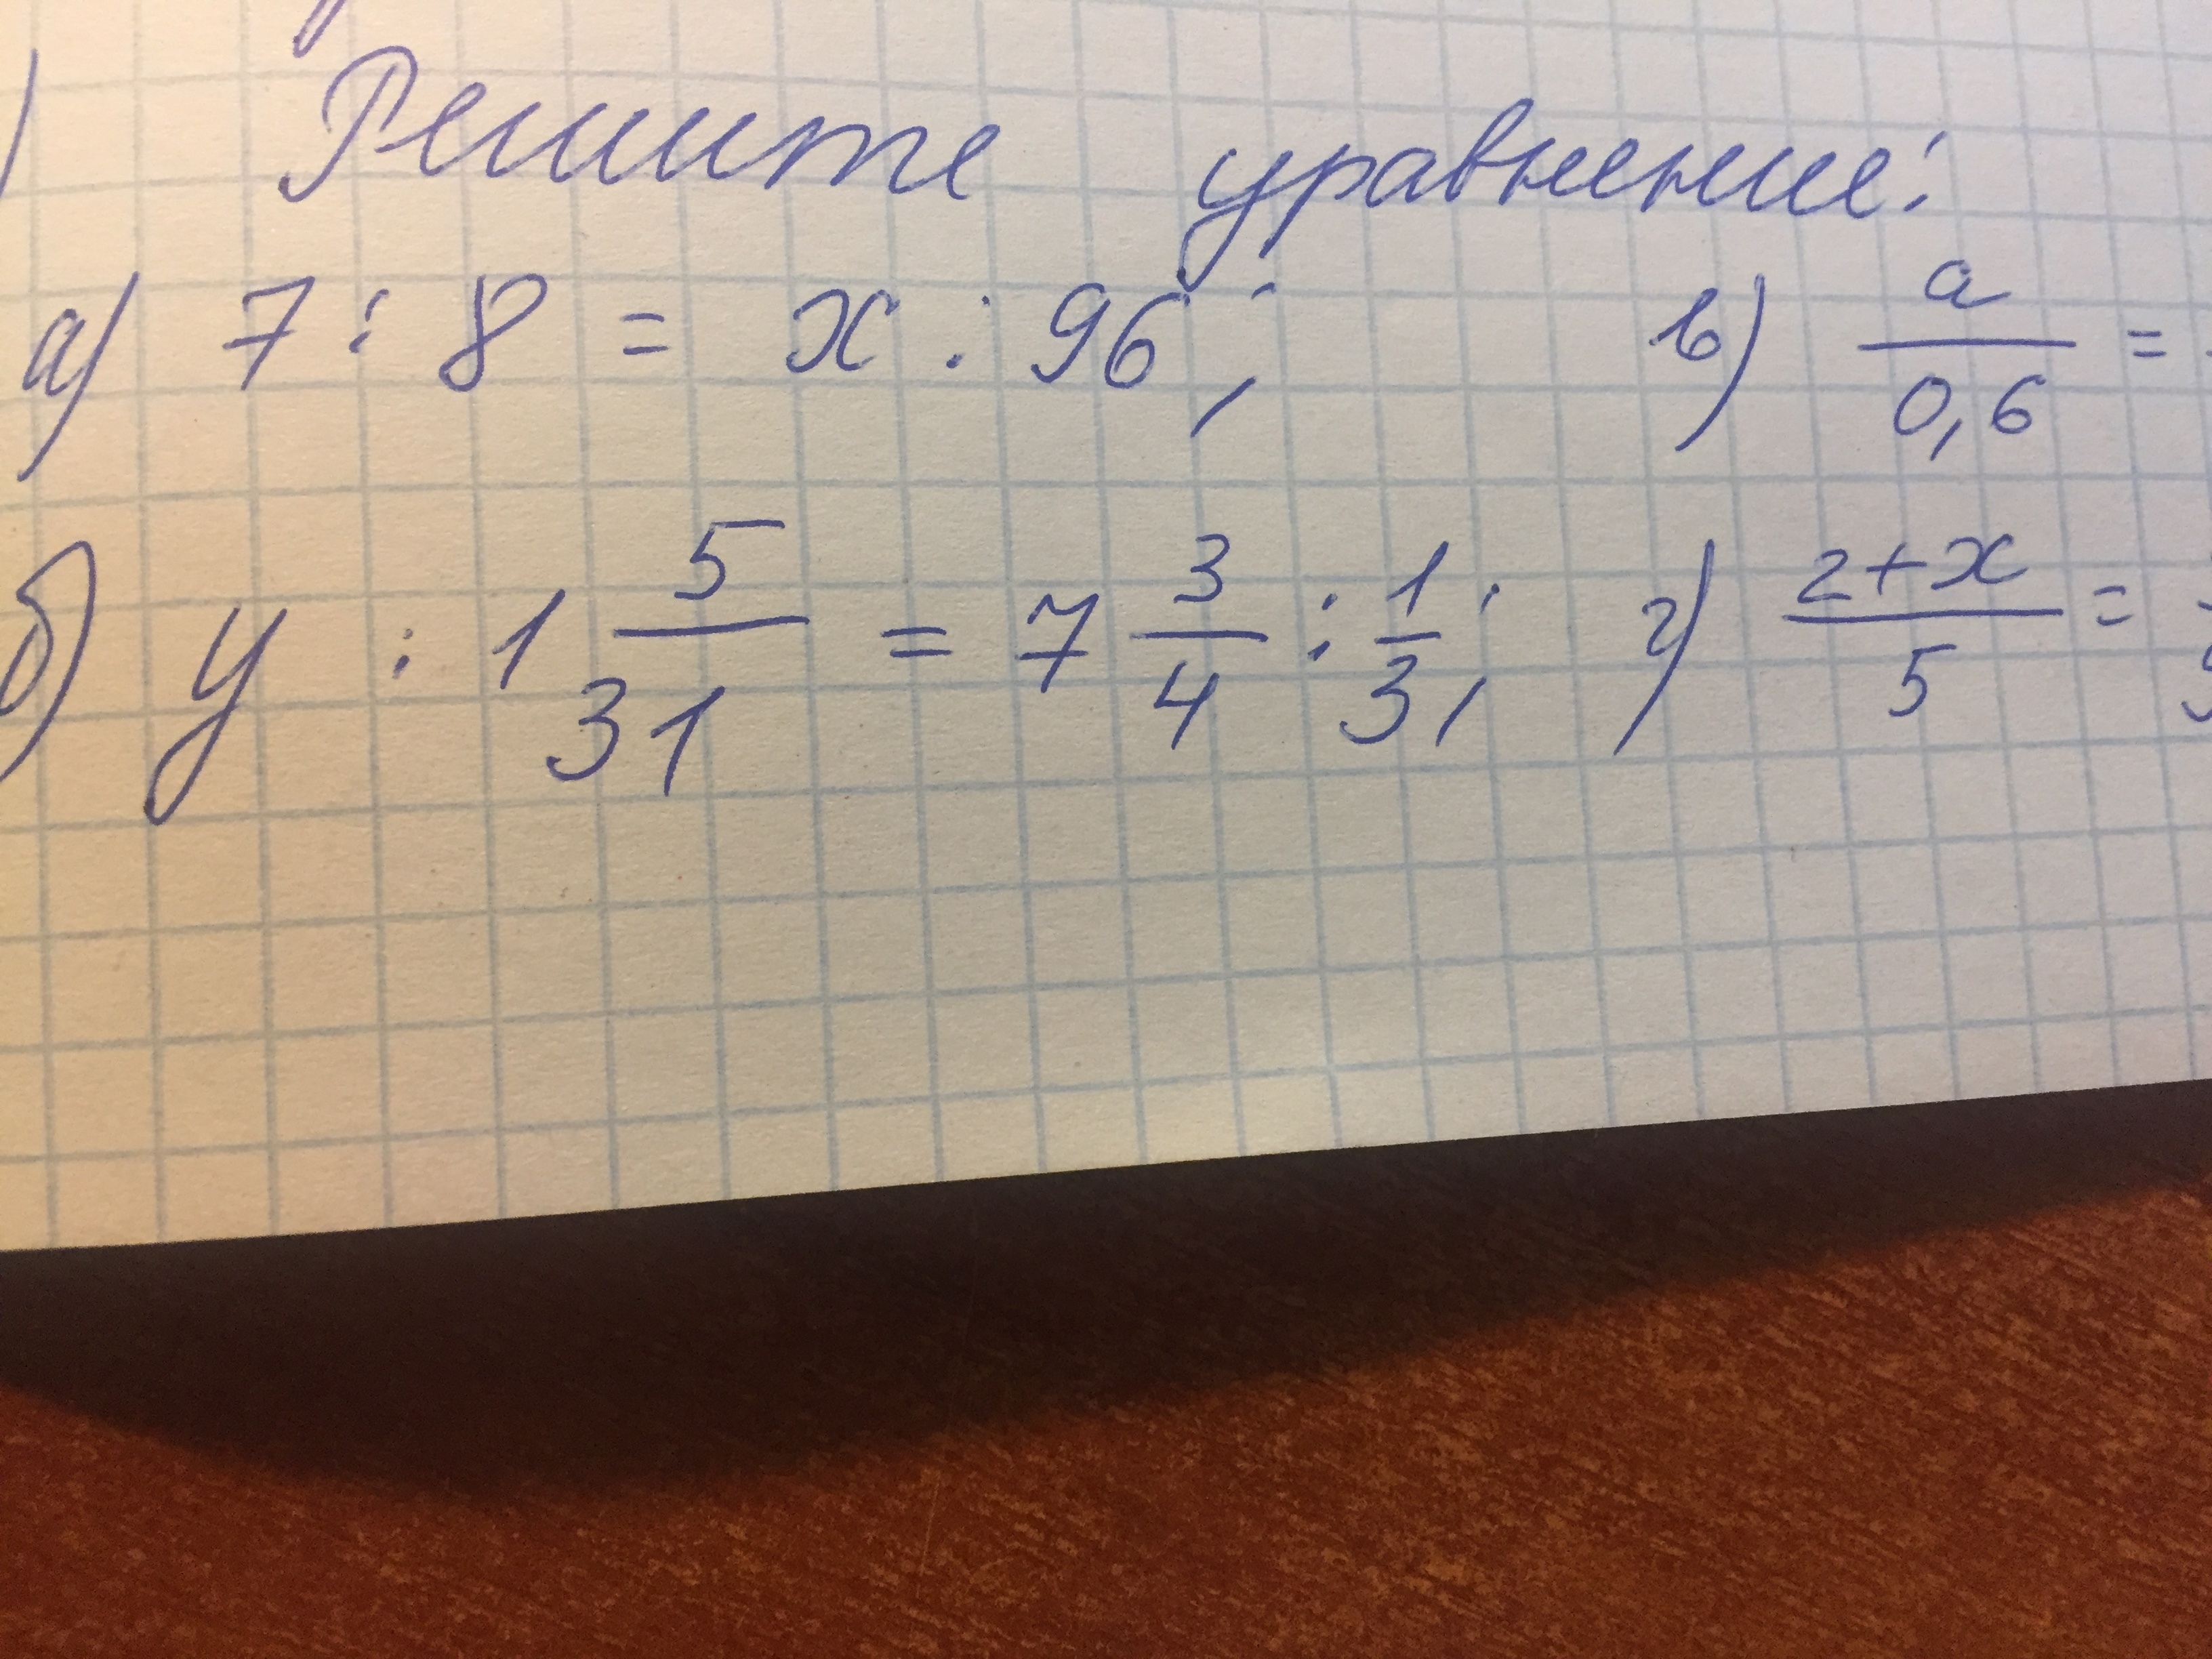 Решите уравнение:
а) 7 : 8 = x : 96 ; в) a/0,6 =
б) y : 1 5/31 = 7 3/4 : 1/3 ; г) 2+x/5 =